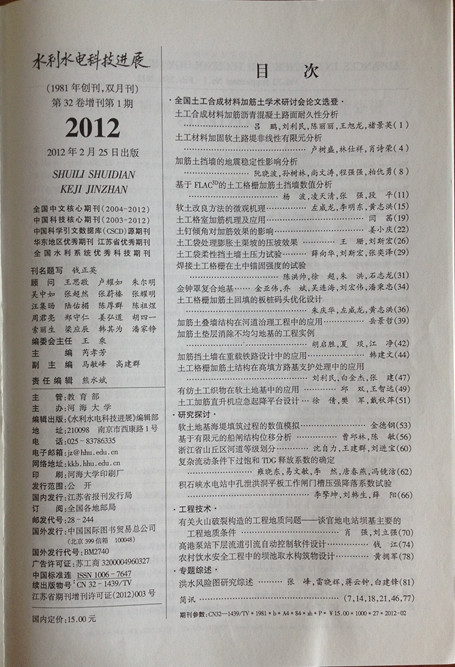 水利水电科技进展
(1981年创刊,双月刊)
第32卷增刊第1期
2012
2012年2月25日出版
SHUILI SHUIDIAN
KEJI JINZHAN
全国中文核心期刊(2004-2012)
中国科技核心期刊(2003-2012)
中国科学引文数据库(CSCD)源期刊
华东地区优秀期刊 江苏省优秀期刊
全国水利系统优秀科技期刊
刊名题写 钱正英
顾问 王思敬 卢耀如 朱尔明
吴中如 张超然 张蔚榛 张耀明
汪集旸 陆佑楣 陈厚群 陈祖煜
周君亮 郑守仁 姜弘道 胡四一
索丽生 梁应辰 韩其为 潘家铮
编委会主任 王乘
主编 芮孝芳
副主编 马敏峰 高建群
责任编辑 熊水斌
主管:教育部
主办:河海大学
编辑出版:《水利水电科技进展》编辑部
地址:210098 南京市西康路1号
电话:025-83786335
电子邮件:jz@hhu.edu.cn
网络地址:kkb.hhu.edu.cn
印刷:河海大学印刷厂
发行范围:公开
国内发行:江苏省报刊发行局
订阅:全国各地邮局
邮发代号:28-244
国外发行:中国国际图书贸易总公司
(北京399信箱 100048)
国外发行代号:BM2740
广告许可证:苏工商3200004960327
中国标准连续出版物号 ISSN 1006-7647
CN 32-1439/TV
江苏省期刊增刊许可证(2012)003号
国内定价:15.00元
目次
·全国土工合成材料加筋土学术研讨会论文选登·
土工合成材料加筋沥青混凝土路面耐久性分析
吕鹏,刘利民,陈丽丽,王旭龙,褚景英(1)
土工材料加固软土路堤非线性有限元分析
卢树盛,林仕祥,肖诗荣(4)
加筋土挡墙的地震稳定性影响分析
阮晓波,孙树林,尚文涛,程强强,柏优勇(8)
基于FLAC3D的土工格栅加筋土挡墙数值分析
杨波,凌天清,张强,段平(11)
软土改良方法的微观机理 左威龙,李明东,黄志洪(15)
土工格室加筋机理及应用 闫茜(19)
土钉倾角对加筋效果的影响 姜小庆(22)
土工袋处理膨胀土渠坡的压坡效果 王珊,刘斯宏(26)
土工袋柔性挡土墙土压力试验 薛向华,刘斯宏,张奕泽(29)
焊接土工格栅在土中锚固强度的试验
陈洪帅,徐超,朱洪,石志龙(31)
金钟翠复合地基 金亚伟,乔斌,吴连海,刘宏伟,潘東忠(34)
土工格栅加筋土回填的板桩码头优化设计
朱庆华,左威龙,黄志洪(36)
加筋土叠墙结构在河道治理工程中的应用 岳景哲(39)
加筋土垫层消除不均匀地基的工程实例
胡启胜,夏琰,江净(42)
加筋挡土墙在重载铁路设计中的应用 韩建文(44)
土工格栅加筋土结构在高填方路基支护处理中的应用
刘利民,白金杰,张建(47)
有纺土工织物在软土地基中的应用 邱双,王智远(49)
土工加筋直升机应急起降平台设计 徐倩,樊军,戴秋萍(51)
·研究探讨·
软土地基海堤填筑过程的数值模拟 金德钢(53)
基于有限元的船闸结构位移分析 曹邱林,陈敏(56)
浙江省山丘区河道等级划分 沈自力,王建群,刘进宝(60)
复杂流动条件下过饱和TDG释放系数的确定
雍晓东,易文敏,李然,唐春燕,冯镜洁(62)
积石峡水电站中孔泄洪洞平板工作闸门槽压强降落系数试验
李擎坤,刘韩生,薛阳(66)
·工程技术·
有关火山破裂构造的工程地质问题——谈官地电站坝基主要的
工程地质条件 肖强,刘立强(70)
高港泵站下层流道引流自动控制软件设计 钱江(74)
农村饮水安全工程中的坝池取水构筑物设计 黄拥军(78)
·专题综述·
洪水风险图研究综述 张峰,雷晓辉,蒋云钟,白建锋(81)
简讯 (7,14,18,21,46,77)
期刊参数:CN32-1439/TV*1981*b*A4*84*zh*P*¥15.00*1000*27*2012-02